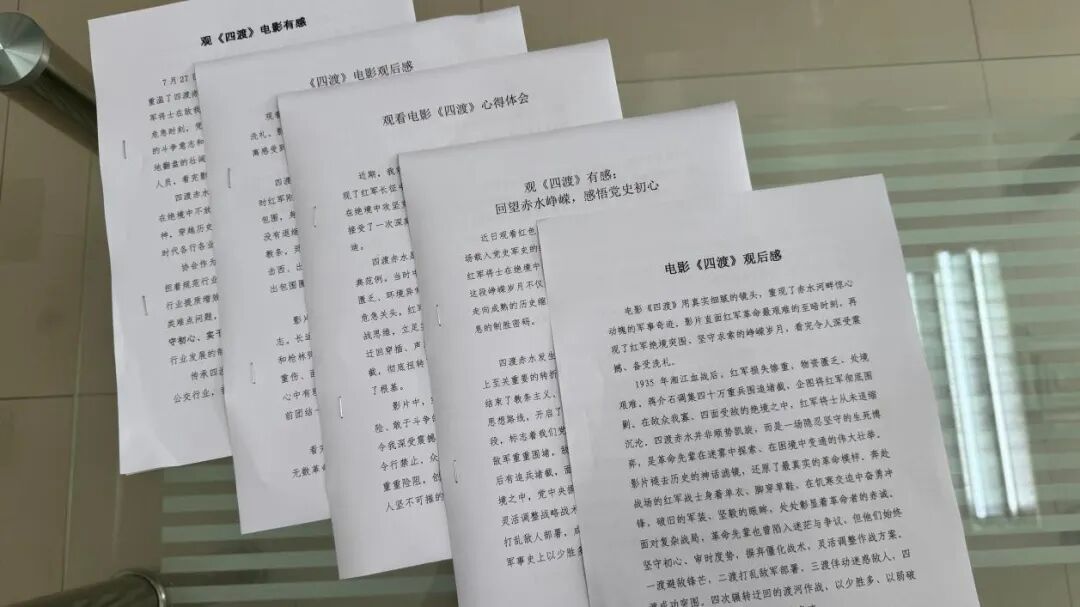 观《四渡》电影有感
7月27日
重温了四渡赤
军将士在敌我
危急时刻，凭
的斗争意志和
地翻盘的壮阔
人员，看完影
四渡赤水
在绝境中不放
神，穿越历史
时代各行各业
协会作为
担着规范行业
行业提质增效
类难点问题，
守初心、实干
行业发展的
传承四渡
公交行业，
《四渡》电影观后感
观看
洗礼。影
离感受到
四渡
时红军刚
包围，身
没有退缩
教条，灵
击西、出
出包围圈
影片
志。长
和枪林弹
重伤、
心中有
前团结一
看完
无数革命
观看电影《四渡》心得体会
近期，我
现了红军长征中
在绝境中攻坚克
接受了一次深
迪。
四渡赤水是
典范例。当时中
匮乏、环境异常
危急关头，红军
战思维，立足实
迂回穿插、声
截，彻底扭转
了根基。
影片中，
险、敢于斗争的
令我深受震撼
令行禁止，众
重重险阻，创
人坚不可摧的
观《四渡》有感：
回望赤水峥嵘，感悟党史初心
近日观看红色
场载入党史军史的
红军将士在绝境中
这段峥嵘岁月不仅
走向成熟的历史缩
息的制胜密码。
四渡赤水发生
上至关重要的转折
结束了教条主义、
思想路线，开启了
段，标志着我们党
敌军重重围堵，敌
后有追兵堵截，面
境之中，党中央
灵活调整战略战术
打乱敌人部署，成
军事史上以少胜多
电影《四渡》观后感
电影《四渡》用真实细腻的镜头，重现了赤水河畔惊心
动魄的军事奇迹，影片直面红军革命最艰难的至暗时刻，再
现了红军绝境突围、坚守求索的峥嵘岁月，看完令人深受震
撼、备受洗礼。
1935 年湘江血战后，红军损失惨重，物资匮乏、处境
艰难。蒋介石调集四十万重兵围追堵截，企图将红军彻底围
剿。在敌众我寡、四面受敌的绝境之中，红军将士从未退缩
沉沦。四渡赤水并非顺势凯旋，而是一场隐忍坚守的生死博
弈，是革命先辈在迷雾中探索、在困境中变通的伟大壮举。
影片褪去历史的神话滤镜，还原了最真实的革命模样。奔赴
战场的红军战士身着单衣、脚穿草鞋，在饥寒交迫中奋勇冲
锋，破旧的军装、坚毅的眼眸，处处彰显着革命者的赤诚。
面对复杂战局，革命先辈也曾陷入迷茫与争议，但他们始终
坚守初心、审时度势，摒弃僵化战术，灵活调整作战方案。
一渡避敌锋芒，二渡打乱敌军部署，三渡佯动迷惑敌人，四
渡成功突围。四次辗转迂回的渡河作战，以少胜多、以弱破